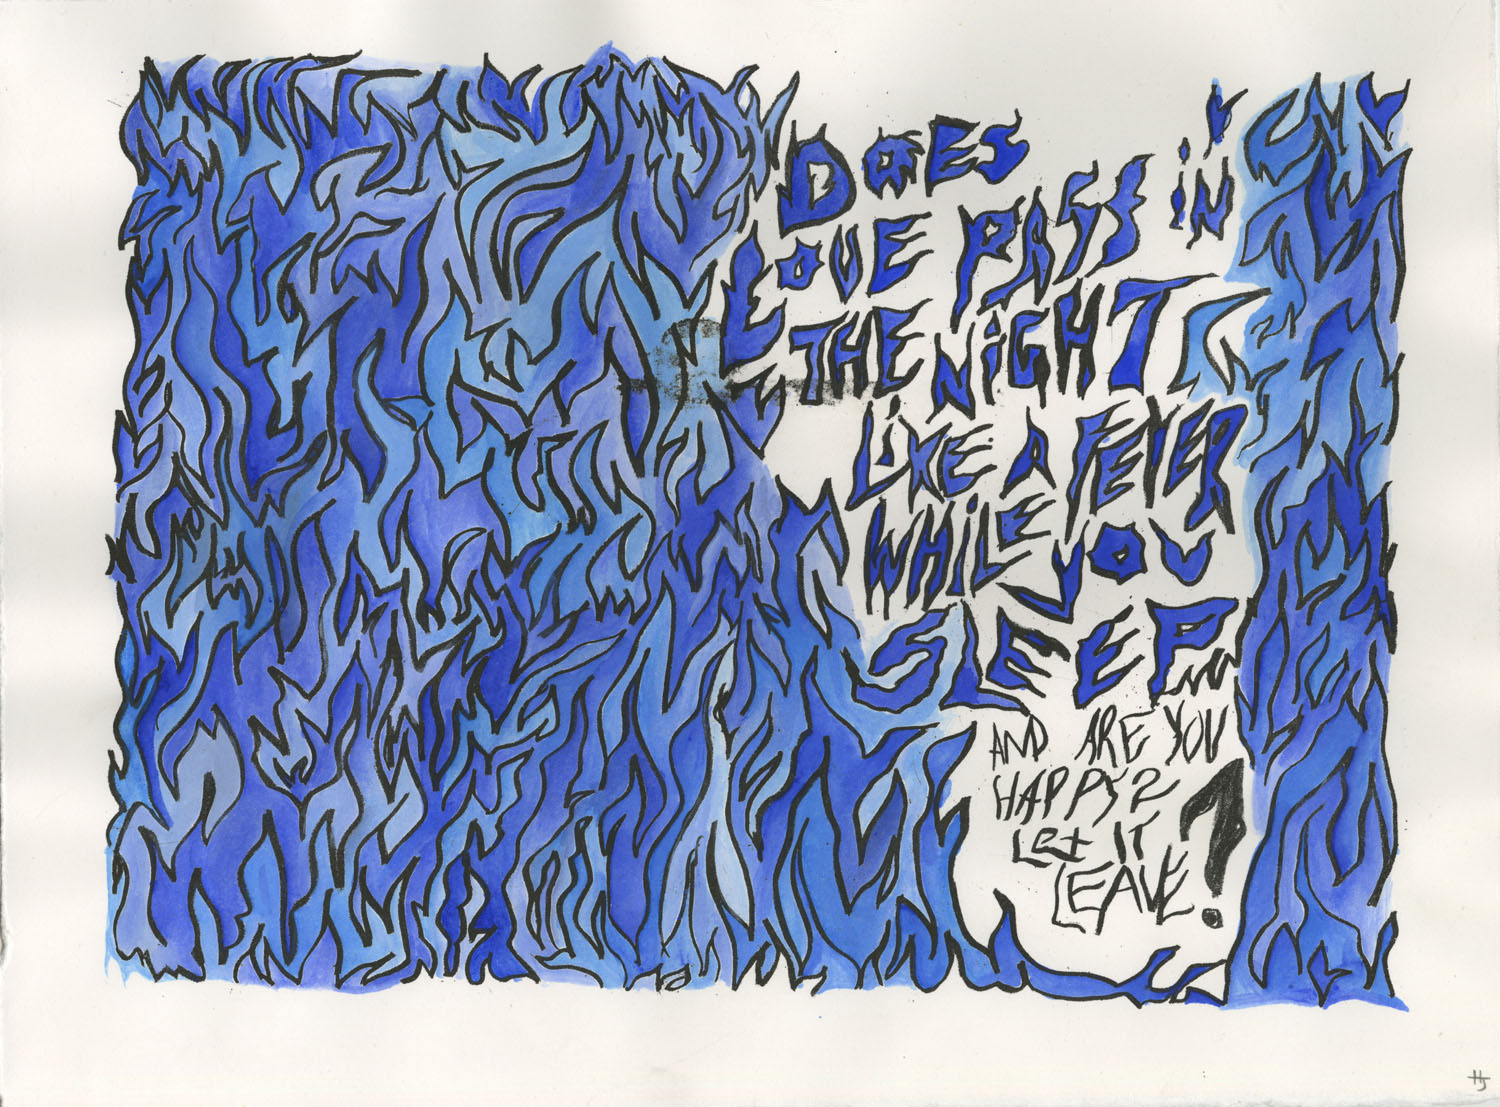 DOES
LOVE PASS IN
THE NIGHT
LIKE A FEVER
WHILE YOU
SLEEP
AND ARE YOU
HAPPY?
Let IT
LEAVE?
HJ